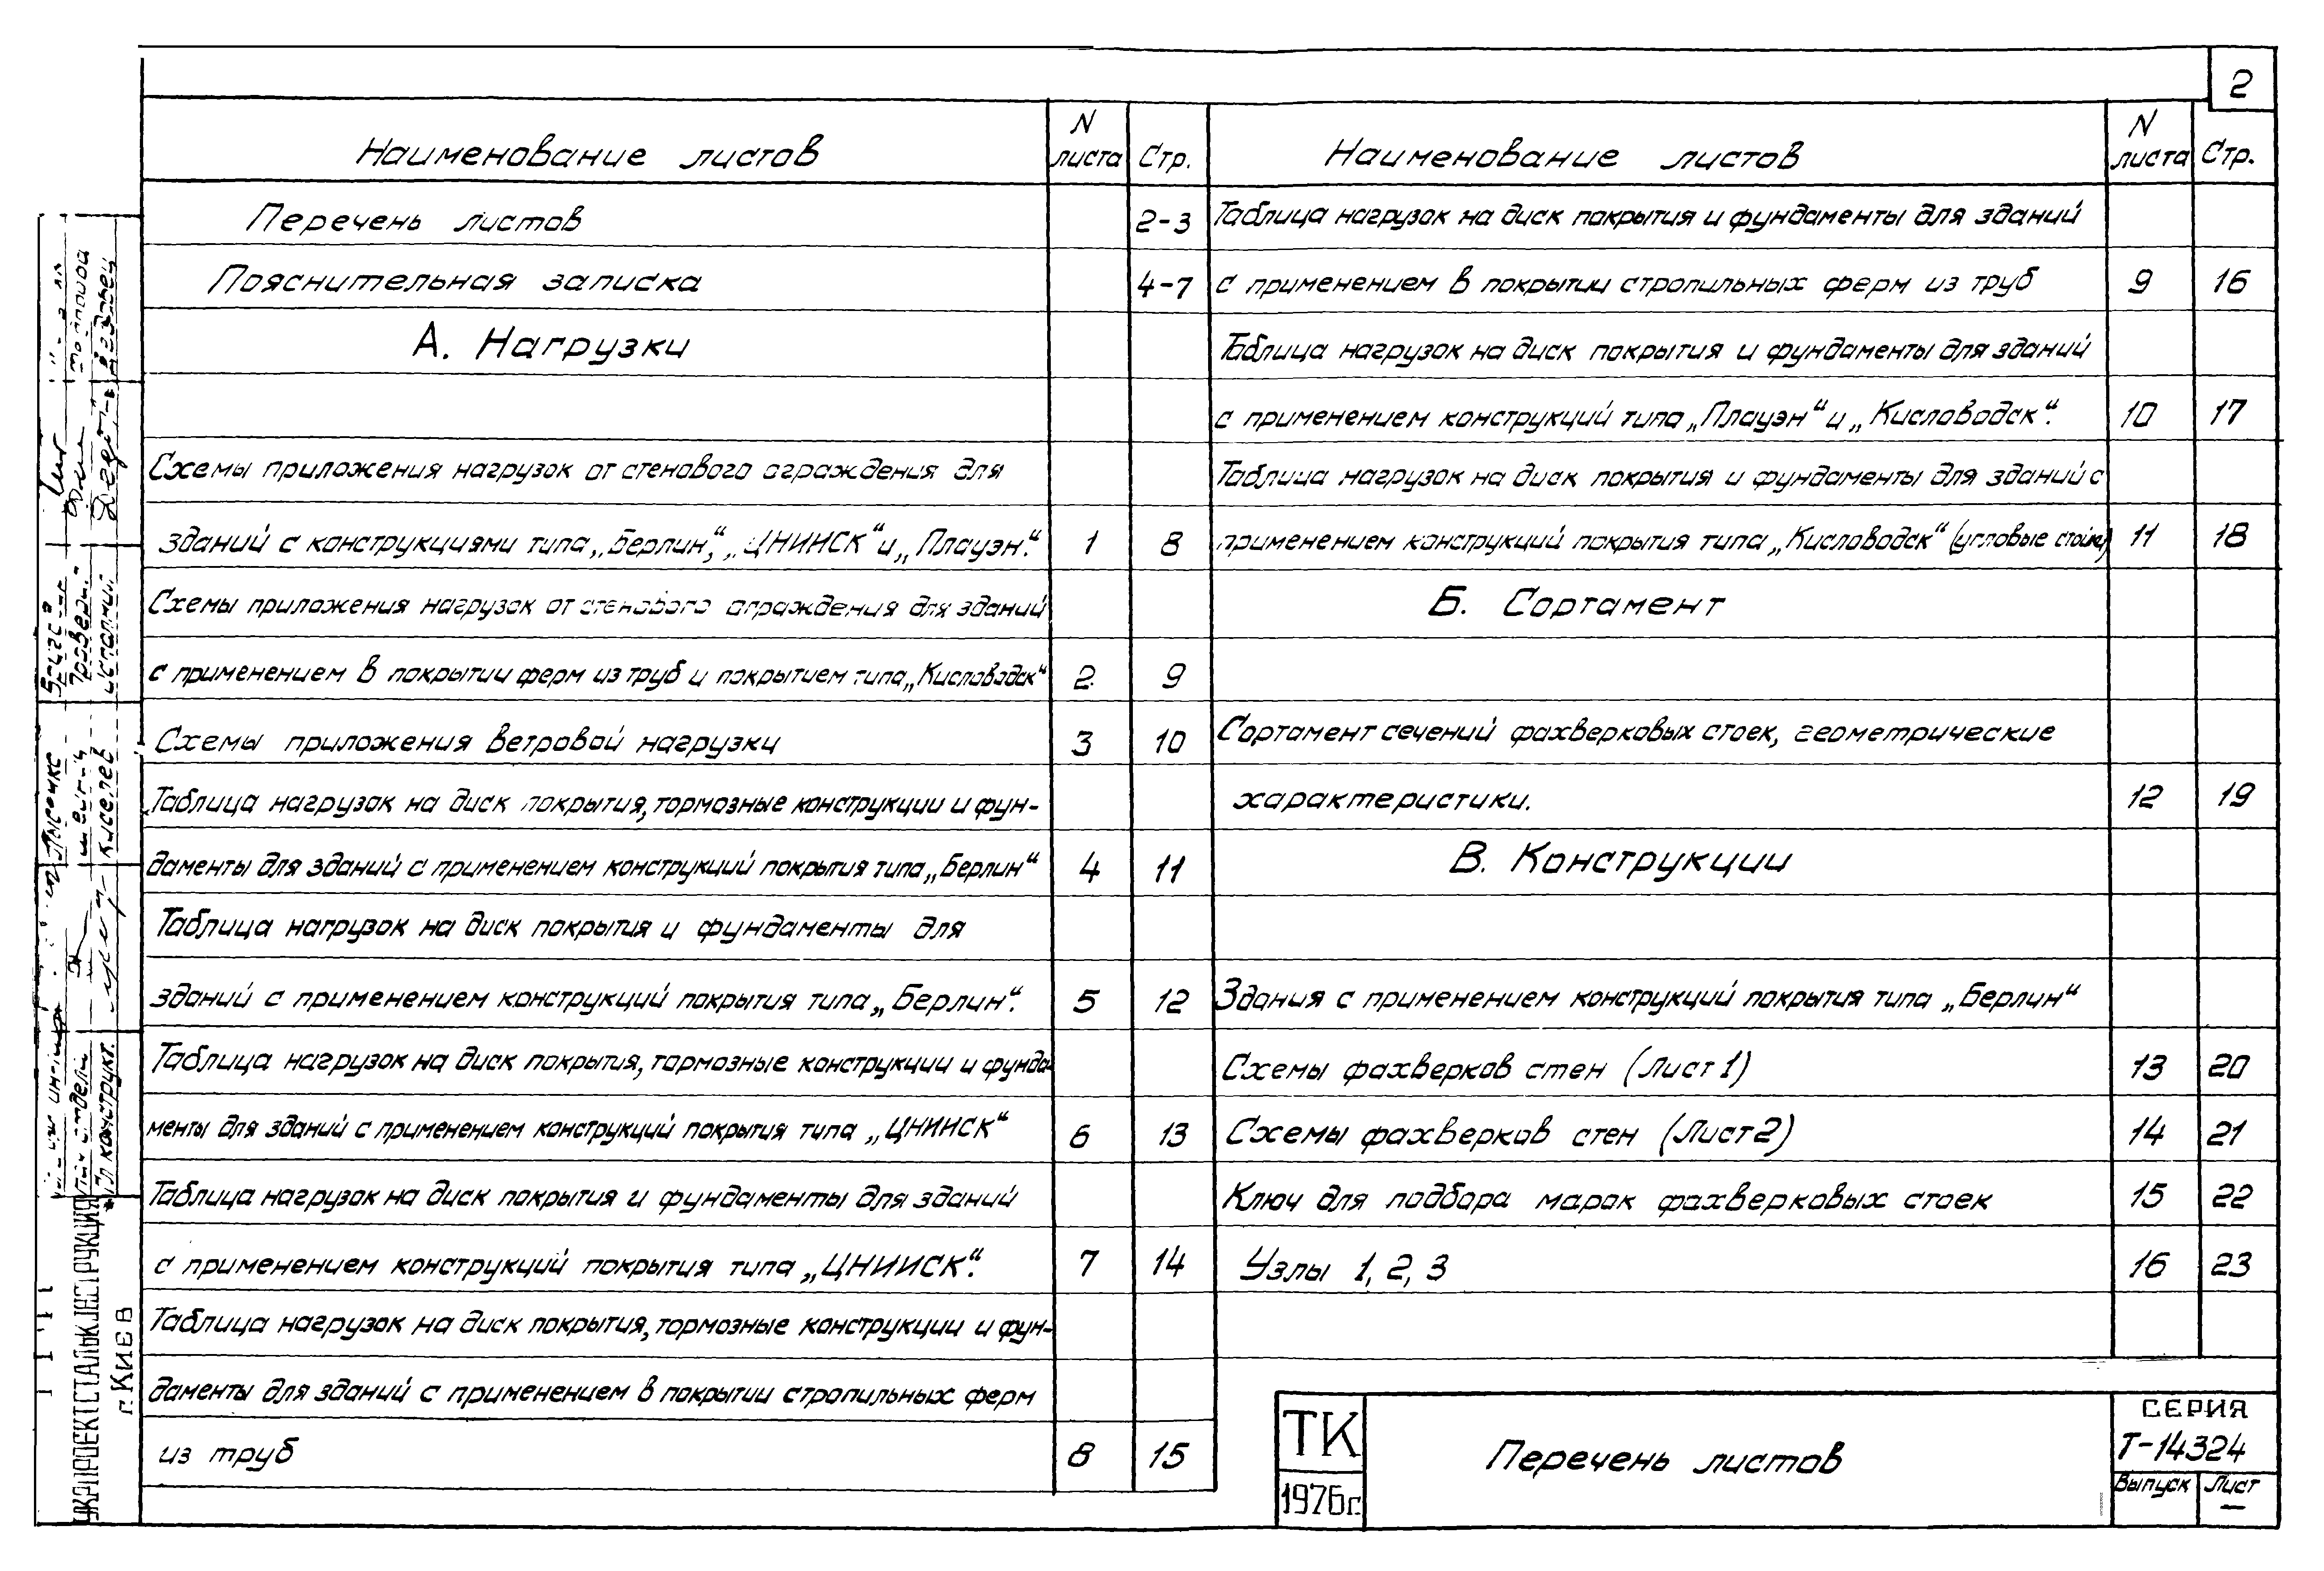 2
Наименование листов
N листа
Стр.
Перечень листов 2-3
Пояснительная записка 4-7
А. Нагрузки
Схемы приложения нагрузок от стенового ограждения для
зданий с конструкциями типа „Берлин“, „ЦНИИСК“ и „Плауэн“. 1 8
Схемы приложения нагрузок от стенового ограждения для зданий
с применением в покрытии ферм из труб и покрытием типа „Кисловодск“ 2 9
Схемы приложения ветровой нагрузки 3 10
Таблица нагрузок на диск покрытия, тормозные конструкции и фун-
даменты для зданий с применением конструкций покрытия типа „Берлин“ 4 11
Таблица нагрузок на диск покрытия и фундаменты для
зданий с применением конструкций покрытия типа „Берлин“. 5 12
Таблица нагрузок на диск покрытия, тормозные конструкции и фунда-
менты для зданий с применением конструкций покрытия типа „ЦНИИСК“ 6 13
Таблица нагрузок на диск покрытия и фундаменты для зданий
с применением конструкций покрытия типа „ЦНИИСК“. 7 14
Таблица нагрузок на диск покрытия, тормозные конструкции и фун-
даменты для зданий с применением в покрытии стропильных ферм
из труб 8 15
Наименование листов
N листа
Стр.
Таблица нагрузок на диск покрытия и фундаменты для зданий
с применением в покрытии стропильных ферм из труб 9 16
Таблица нагрузок на диск покрытия и фундаменты для зданий
с применением конструкций типа „Плауэн“ и „Кисловодск“. 10 17
Таблица нагрузок на диск покрытия и фундаменты для зданий с
применением конструкций покрытия типа „Кисловодск“ (угловые стойки) 11 18
Б. Сортамент
Сортамент сечений фахверковых стоек, геометрические
характеристики. 12 19
В. Конструкции
Здания с применением конструкций покрытия типа „Берлин“
Схемы фахверков стен (Лист 1) 13 20
Схемы фахверков стен (Лист 2) 14 21
Ключ для подбора марок фахверковых стоек 15 22
Узлы 1, 2, 3 16 23
ТК
1976г.
Перечень листов
СЕРИЯ
Т-14324
Выпуск
Лист
—
УКРПРОЕКТСТАЛЬКОНСТРУКЦИЯ
г. Киев
конструкт.
Киселев